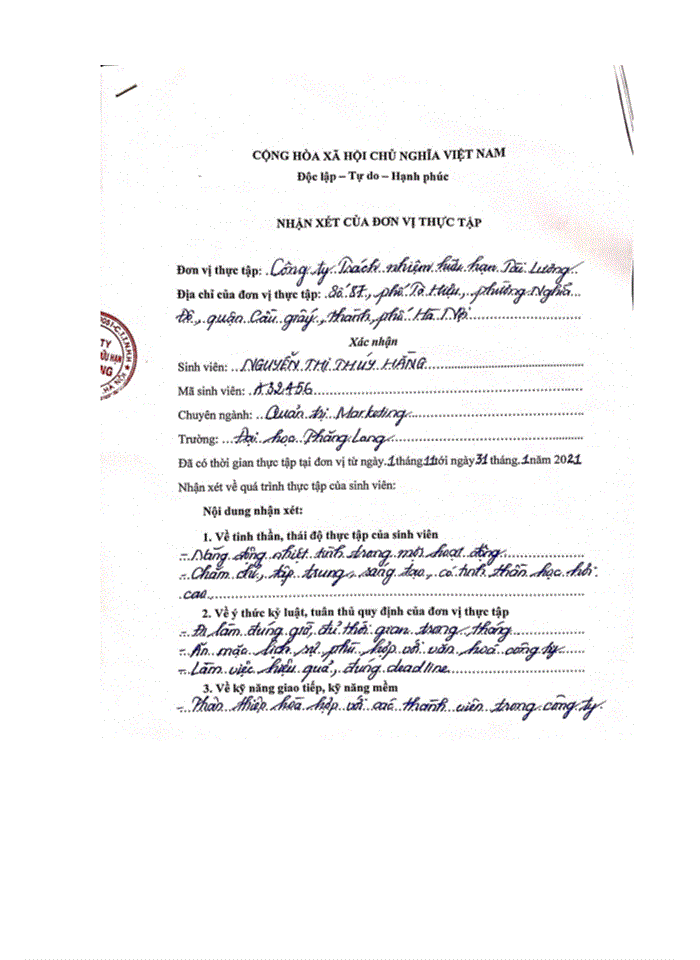 CỘNG HÒA XÃ HỘI CHỦ NGHĨA VIỆT NAM
Độc lập – Tự do – Hạnh phúc
NHẬN XÉT CỦA ĐƠN VỊ THỰC TẬP
Đơn vị thực tập: Công ty Trách nhiệm hữu hạn Tài Lương
Địa chỉ của đơn vị thực tập: Số 87, phố Tô Hiệu, phường Nghĩa
Đô, quận Cầu giấy, thành phố Hà Nội
Xác nhận
Sinh viên: NGUYỄN THỊ THÚY HẰNG
Mã sinh viên: A32456
Chuyên ngành: Quản trị Marketing
Trường: Đại học Thăng Long
Đã có thời gian thực tập tại đơn vị từ ngày 1 tháng 11 tới ngày 31 tháng 1 năm 2021
Nhận xét về quá trình thực tập của sinh viên:
Nội dung nhận xét:
1. Về tinh thần, thái độ thực tập của sinh viên
- Năng động nhiệt tình trong mọi hoạt động
- Chăm chỉ, tập trung, sáng tạo, có tinh thần học hỏi
cao
2. Về ý thức kỷ luật, tuân thủ quy định của đơn vị thực tập
- Đi làm đúng giờ, đủ thời gian trong tháng
- Ăn mặc lịch sự phù hợp với văn hoá công ty
- Làm việc hiệu quả, đúng deadline
3. Về kỹ năng giao tiếp, kỹ năng mềm
- Thân thiện hoà hợp với các thành viên trong công ty
TY
ỮU HẠN
NG
HÀ NỘI